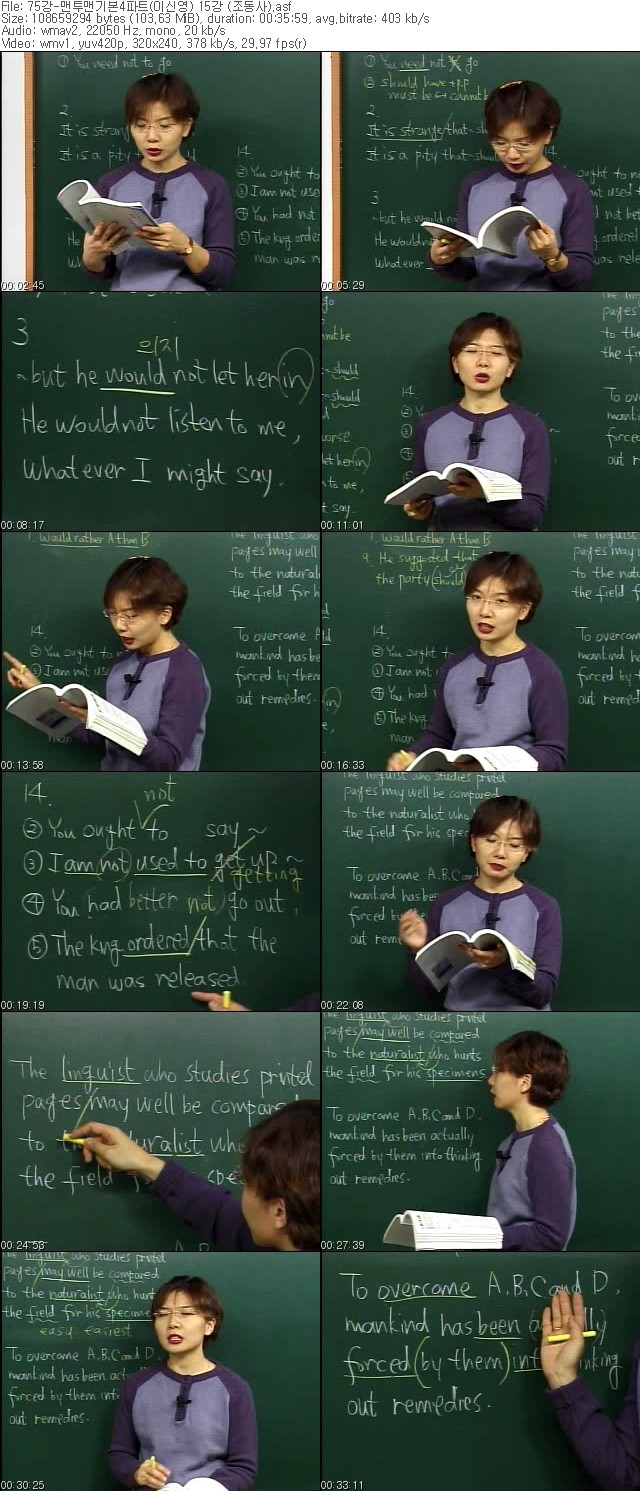 File: 75강-맨투맨기본4파트(이신영) 15강 (조동사).asf
Size: 108659294 bytes (103,63 MiB), duration: 00:35:59, avg.bitrate: 403 kb/s
Audio: wmav2, 22050 Hz, mono, 20 kb/s
Video: wmv1, yuv420p, 320x240, 378 kb/s, 29,97 fps(r)
① You need not to go
2
It is strang
It is a pity
14.
② You ought to
③ I am not use
④ You had not
⑤ The kng order
man was re
He
wh
00:02:45
① You need not X go
② should have +p.p
must be ↔ cannot b
2.
It is strange that
It is a pity that
14.
3
~but he would no
He wouldno
whatever
man was rel
00:05:29
3
의지
~but he would not let her (in)
He wouldnot listen to me,
whatever I might say.
00:08:17
go
not be
should
should
14.
pages
to the
the fi
To ov
manki
force
out r
t say.
00:11:01
Would rather A than B
The linguist who
pages may well
to the natural
the field for h
14.
② You ought to
③ I am not us
To overcome A
mankind has be
forced by them
out remedies.
00:13:58
Would rather A than B
9. He suggested that
the party (should)
14.
② You ought
③ I am n
④ You had
⑤ The kng
pages may
to the natu
the field for
To overcome
mankind has
forced by th
out remedie
00:16:33
14.
not
② You ought to say ~
③ I am (not) used to get up ~
getting
④ You had better not go out,
⑤ The kng ordered that the
man was released
00:19:19
The linguist who studies printed
pages may well be compared
to the naturalist who
the field for his spec
To overcome A.B.C an
mankind has bee
forced by
out reme
00:22:08
The linguist who studies printed
pages may well be compar
to the naturalist who
the field
00:24:53
The linguist who studies printed
pages may well be compared
to the naturalist who hunts
the field for his specimens
To overcome A.B.C and D.
mankind has been actually
forced by them into thinking
out remedies.
00:27:39
The linguist who studies printed
pages may well be compared
to the naturalist who hunt
the field for his specime
easy easiest
To overcome A.B.C and D
mankind has been act
forced by them into
out remedies.
00:30:25
To overcome A, B, C and D,
mankind has been
forced (by them) int inking
out remedies.
00:33:11